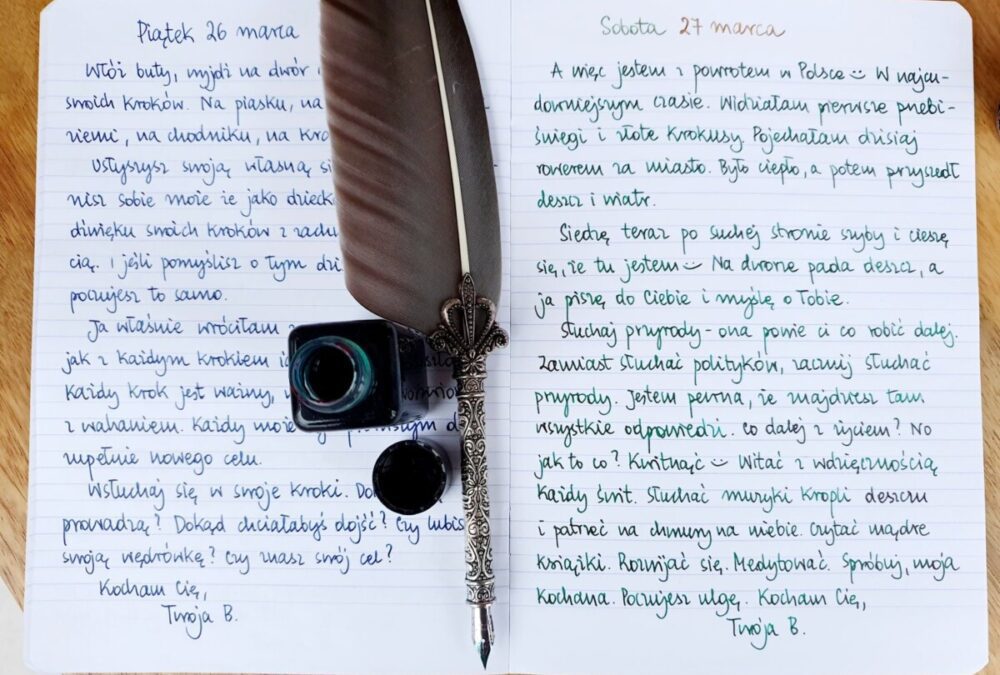 Piątek 26 marca
Włóż buty, wyjdź na dwór
swoich kroków. Na piasku, na
ziemi, na chodniku, na
Usłyszysz swoją własną
nisz sobie może że jako
dźwięku swoich kroków z
cią. I jeśli pomyślisz o tym
poczujesz to samo.
Ja właśnie wróciłam z
jak z każdym krokiem
Każdy krok jest ważny,
z wahaniem. Każdy może
zupełnie nowego celu.
Wsłuchaj się w swoje kroki.
prowadzą? Dokąd chciałabyś dojść? Czy lubisz
swoją wędrówkę? Czy znasz swój cel?
Kocham Cię,
Twoja B.
Sobota 27 marca
A więc jestem z powrotem w Polsce W najcu-
downiejszym czasie. Widziałam pierwsze przebi-
śniegi i złote krokusy. Pojechałam dzisiaj
rowerem za miasto. Było ciepło, a potem przyszedł
deszcz i wiatr.
Siedzę teraz po suchej stronie szyby i cieszę
się, że tu jestem Na dworze pada deszcz, a
ja piszę do Ciebie i myślę o Tobie.
Słuchaj przyrody - ona powie ci co robić dalej.
Zamiast słuchać polityków, zacznij słuchać
przyrody. Jestem pewna, że znajdziesz tam
wszystkie odpowiedzi. Co dalej z życiem? No
jak to co? Kwitnąć Witać z wdzięcznością
każdy świt. Słuchać muzyki kropli deszczu
i patrzeć na chmury na niebie. Czytać mądre
książki. Rozwijać się. Medytować. Spróbuj, moja
Kochana. Poczujesz ulgę. Kocham Cię,
Twoja B.